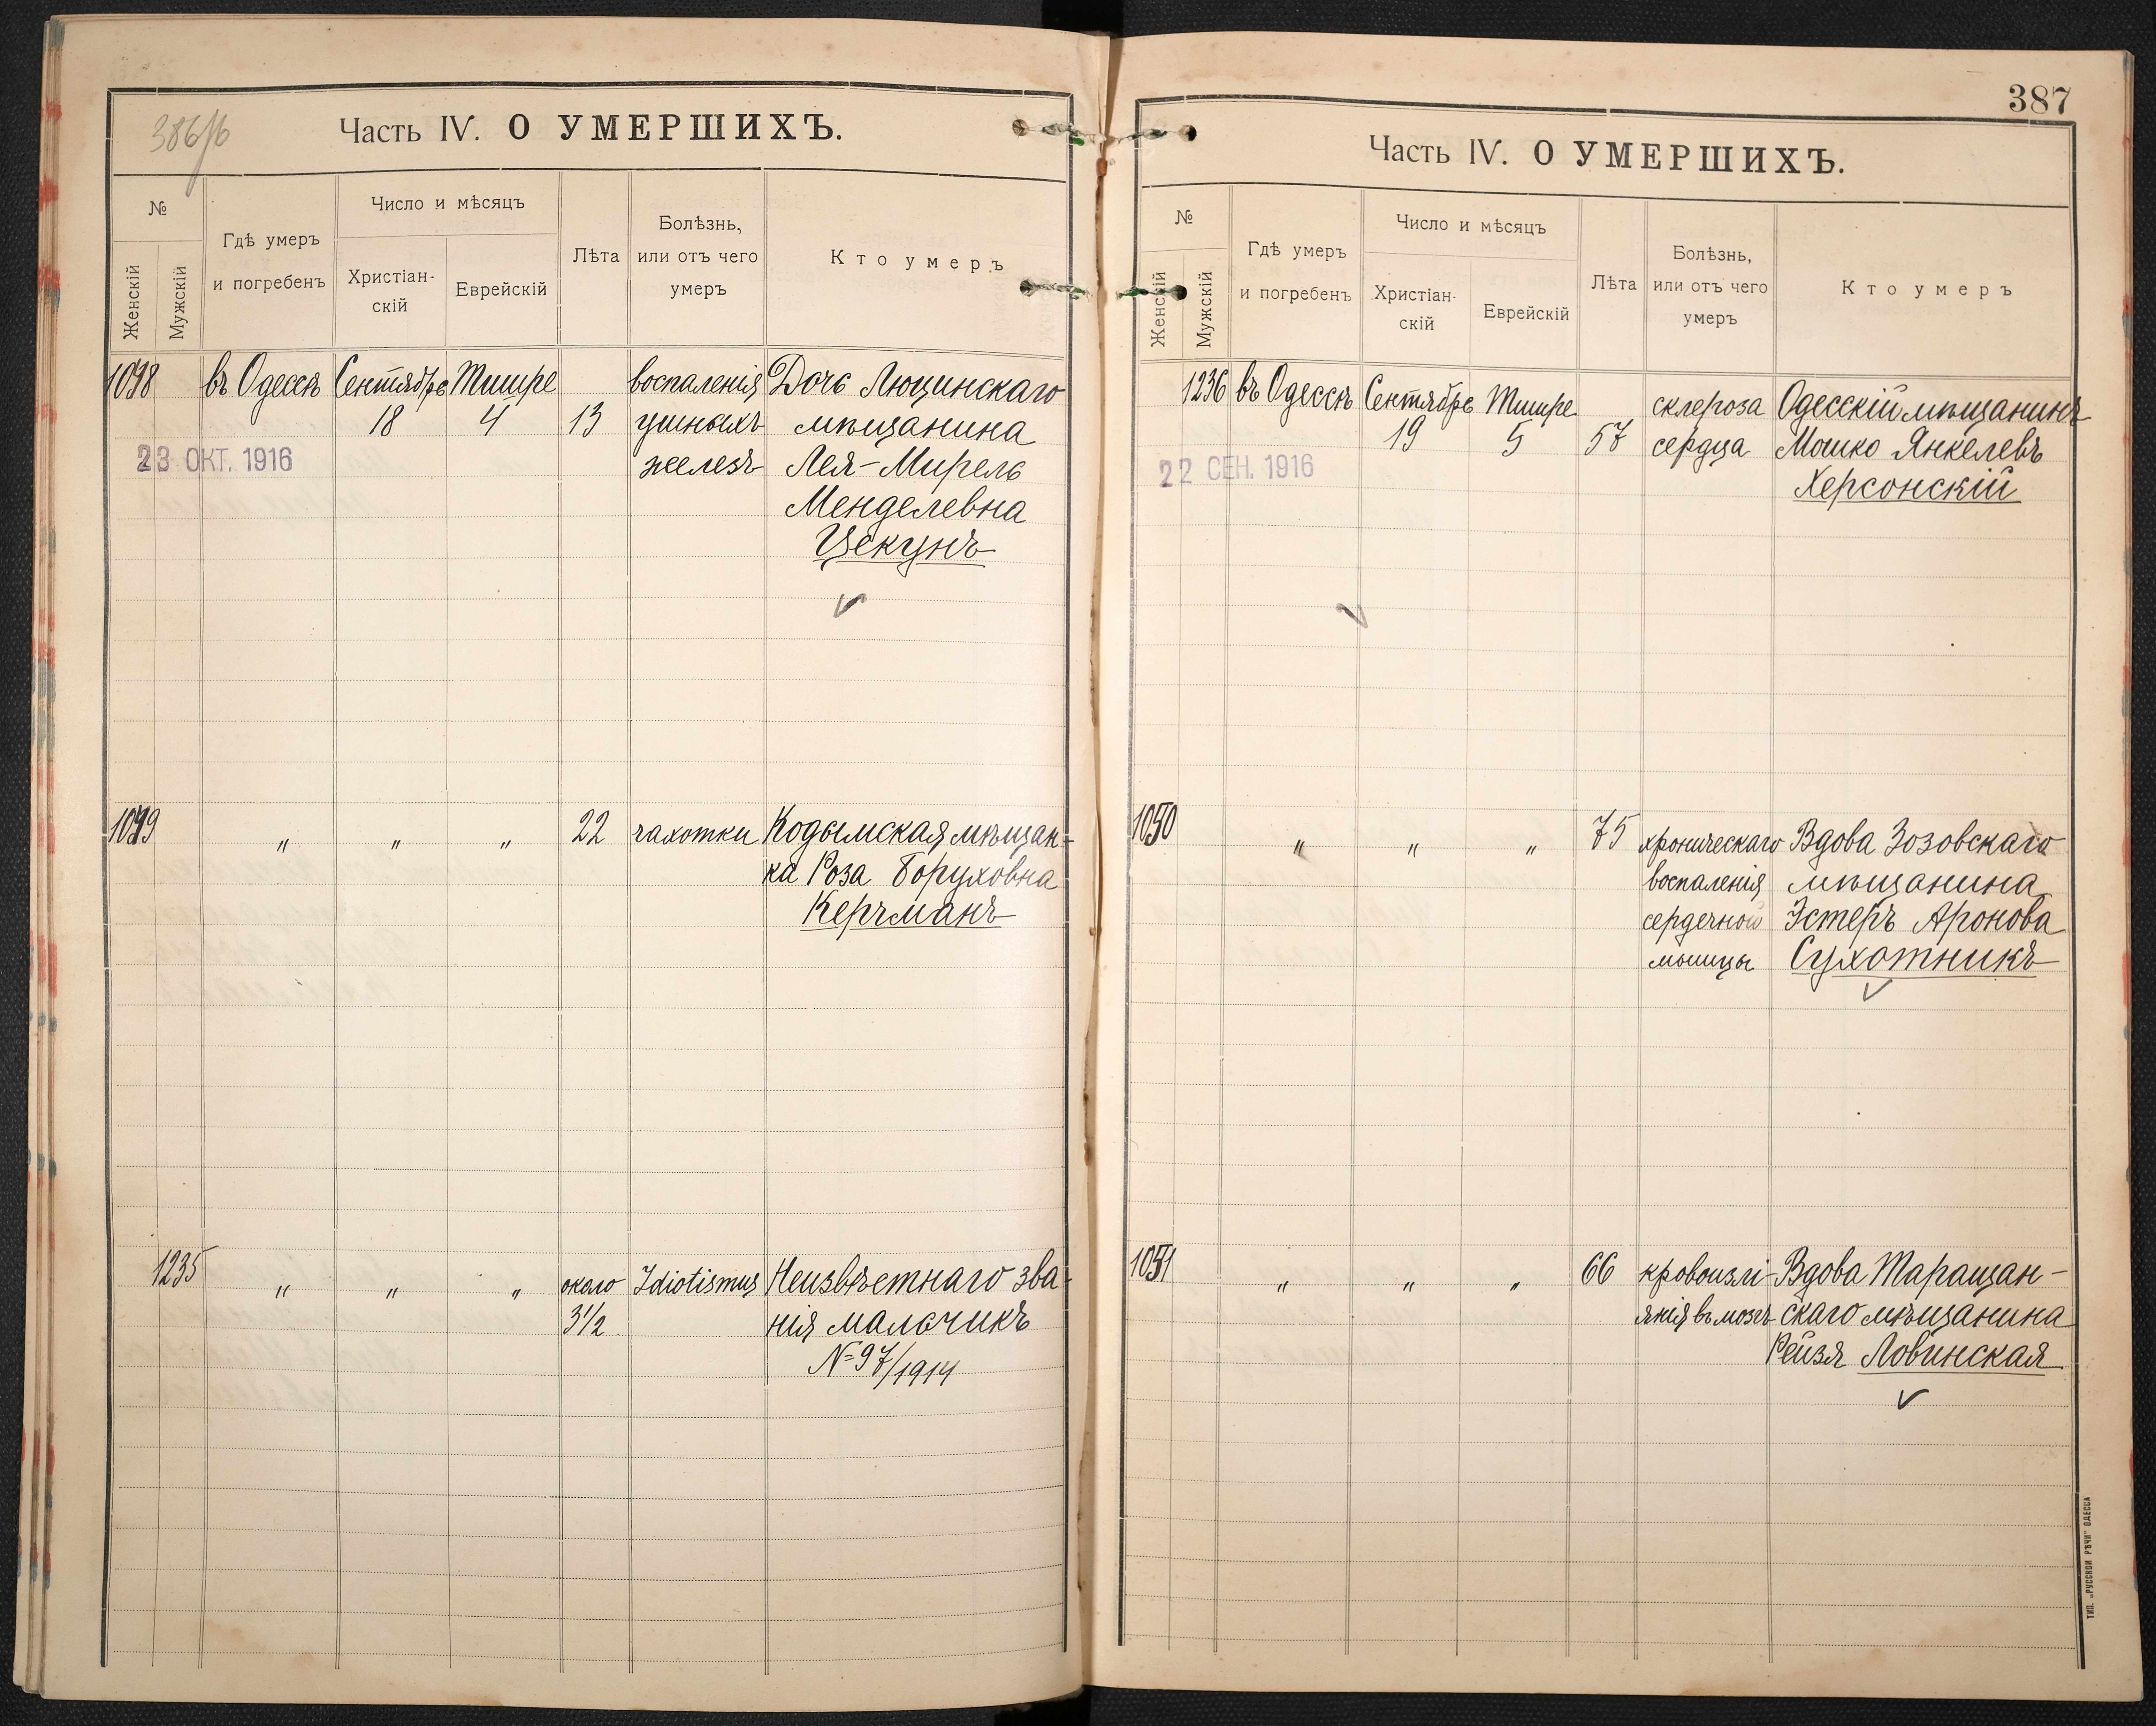 386/б
Часть IV. О УМЕРШИХЪ.
№
Женскій
Мужскій
Гдѣ умеръ
и погребенъ
Число и мѣсяцъ
Христіан-
скій
Еврейскій
Лѣта
Болѣзнь,
или отъ чего
умеръ
Кто умеръ
1098 въ Одессѣ Сентябрь Тишре воспаленія Дочь Люцинскаго
18 4 13 ушныхъ мѣщанина
23 ОКТ. 1916 железъ Лея-Мирель
Менделевна
Цекунъ
1099 " " " 22 чахотки Кодымская мѣщан-
ка Роза Боруховна
Керчманъ
1235 " " " около Idiotismus Неизвѣстнаго зва-
3 1/2 нія мальчикъ
№ 97/1914
387
Часть IV. О УМЕРШИХЪ.
№
Женскій
Мужскій
Гдѣ умеръ
и погребенъ
Число и мѣсяцъ
Христіан-
скій
Еврейскій
Лѣта
Болѣзнь,
или отъ чего
умеръ
Кто умеръ
1236 въ Одессѣ Сентябрь Тишре склероза Одесскій мѣщанинъ
19 5 57 сердца Мошко Янкелевъ
22 СЕН. 1916 Херсонскій
1050 " " " 75 хроническаго Вдова Зозовскаго
воспаленія мѣщанина
сердечной Эстеръ Аронова
мышцы Сухотникъ
1051 " " " 66 кровоизлі- Вдова Таращан-
янія въ мозгъ скаго мѣщанина
Рейзя Ловинская
ТИП. „РУССКОЙ РѢЧИ" ОДЕССА